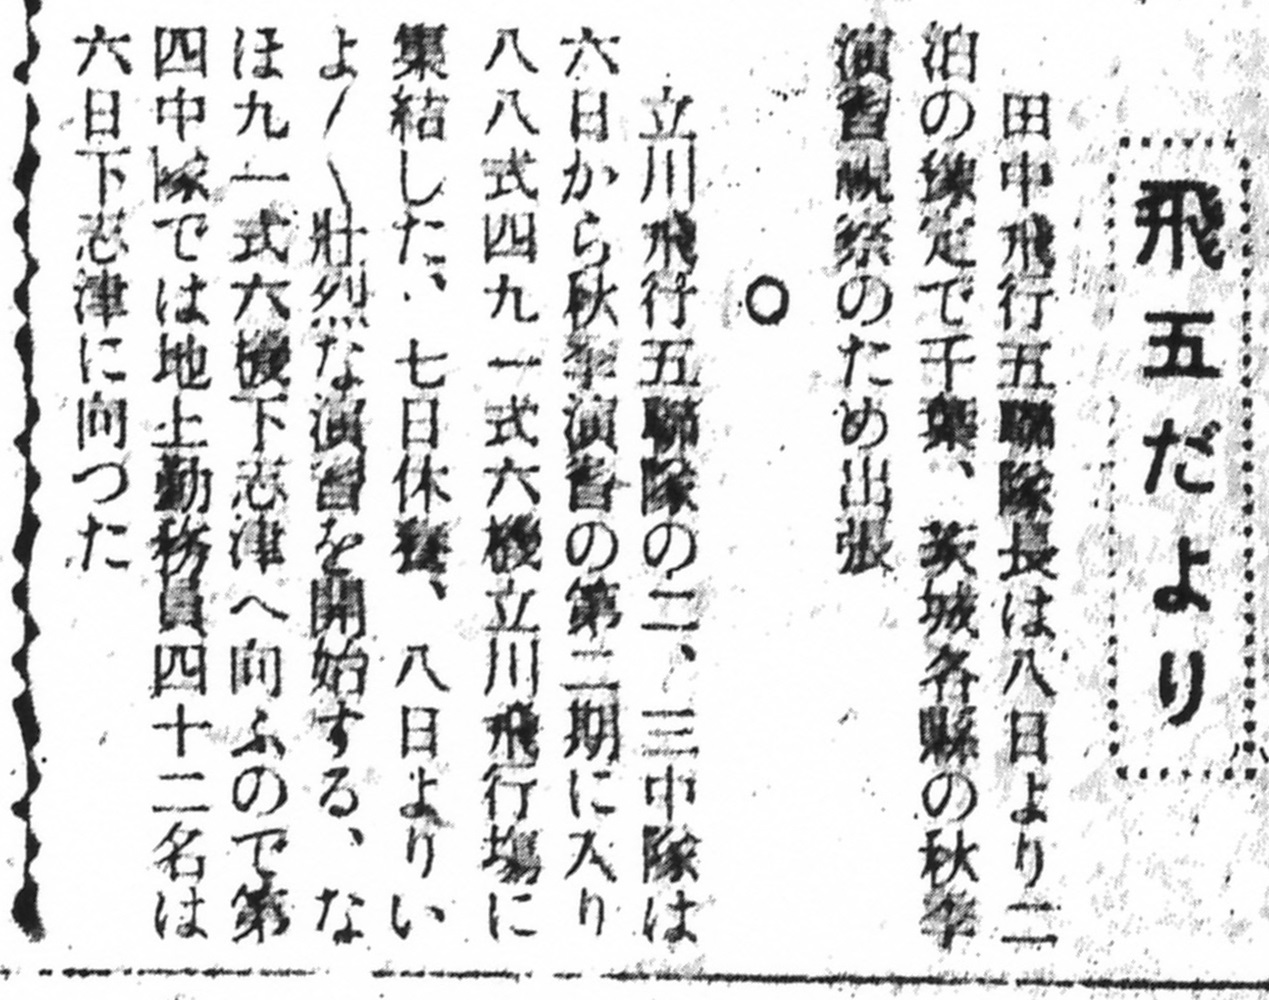 飛五だより
田中飛行五聯隊長は八日より二
泊の豫定で千葉、茨城各縣の秋季
演習視察のため出張
○
立川飛行五聯隊の二、三中隊は
六日から秋季演習の第二期に入り
八八式四九一式六機立川飛行場に
集結した、七日休養、八日よりい
よ〱壯烈な演習を開始する、な
ほ九一式六機下志津へ向ふので第
四中隊では地上勤務員四十二名は
六日下志津に向つた